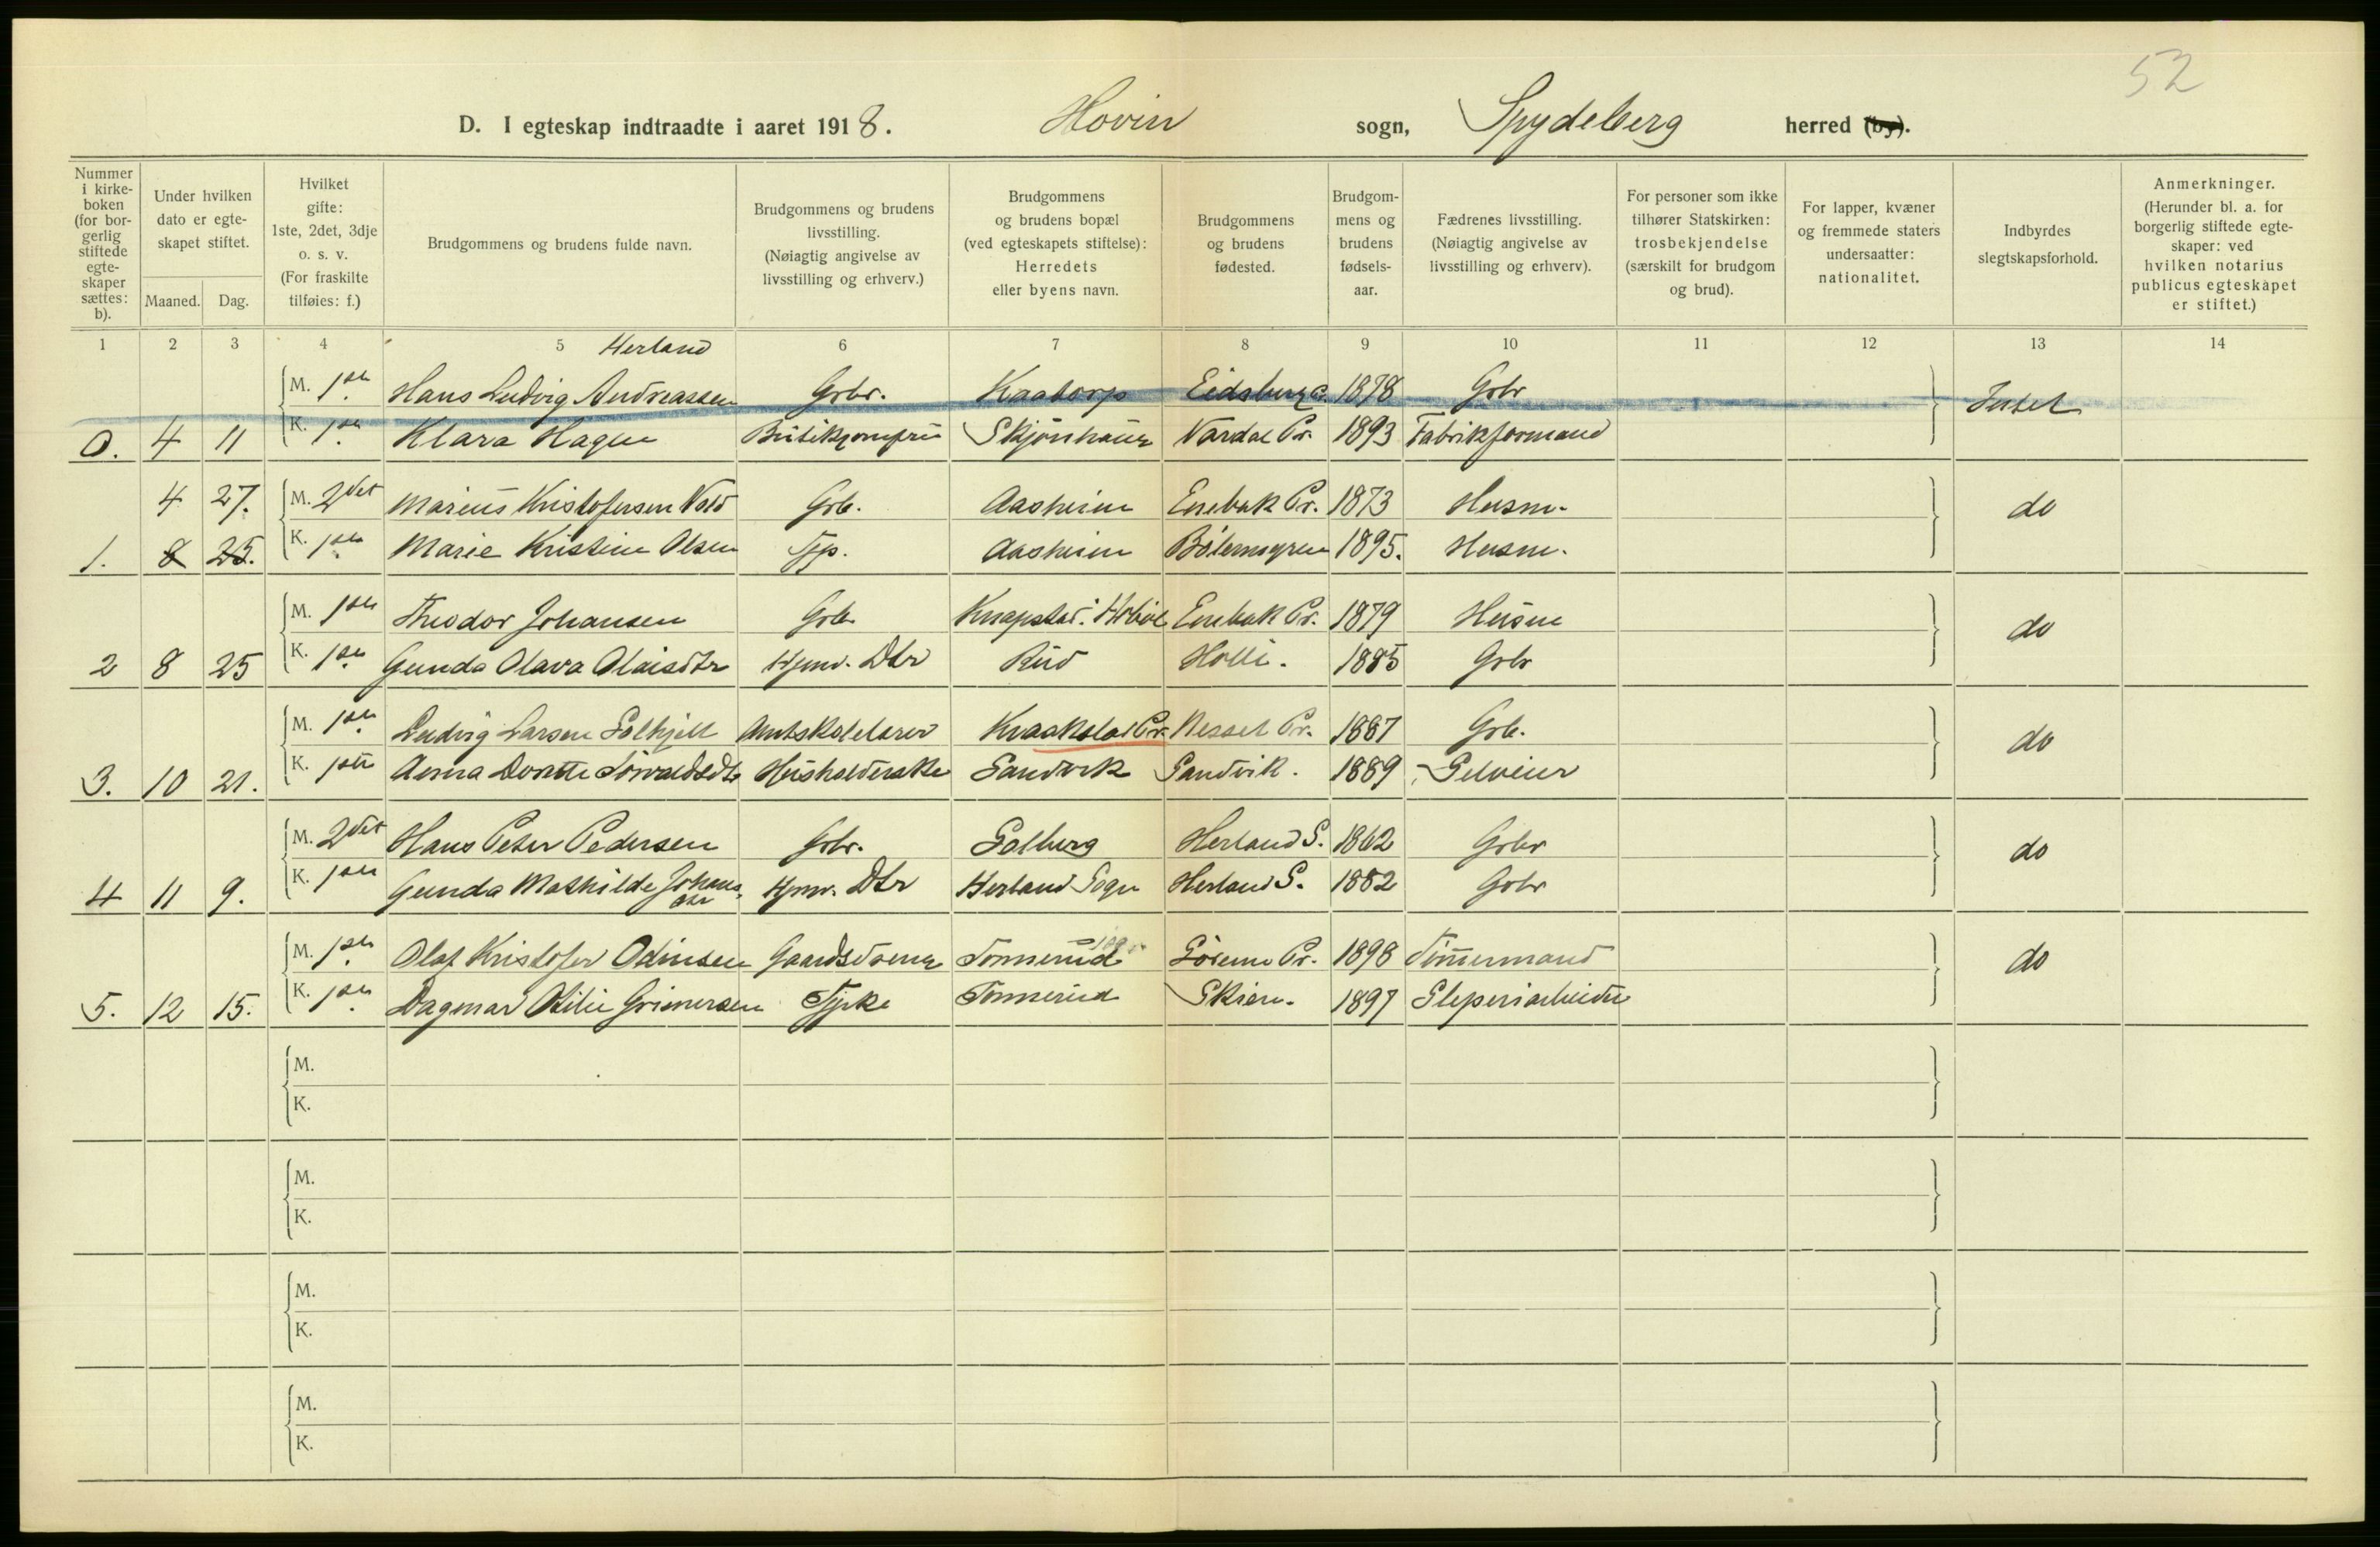 52
D. I egteskap indtraadte i aaret 1918. Hovin sogn, Spydeberg herred (by).
Nummer i kirke-boken (for bor-gerlig stiftede egte-skaper sættes: b).
Under hvilken dato er egte-skapet stiftet.
Maaned. Dag.
Hvilket gifte: 1ste, 2det, 3dje o. s. v. (For fraskilte tilføies: f.)
Brudgommens og brudens fulde navn.
Brudgommens og brudens livsstilling. (Nøiagtig angivelse av livsstilling og erhverv.)
Brudgommens og brudens bopæl (ved egteskapets stiftelse): Herredets eller byens navn.
Brudgommens og brudens fødested.
Brudgom-mens og brudens fødsels-aar.
Fædrenes livsstilling. (Nøiagtig angivelse av livsstilling og erhverv).
For personer som ikke tilhører Statskirken: trosbekjendelse (særskilt for brudgom og brud).
For lapper, kvæner og fremmede staters undersaatter: nationalitet.
Indbyrdes slegtskapsforhold.
Anmerkninger. (Herunder bl. a. for borgerlig stiftede egte-skaper: ved hvilken notarius publicus egteskapet er stiftet.)
1 2 3 4 5 6 7 8 9 10 11 12 13 14
Herland
M. 1ste Hans Ludvig Andreassen Grbr. Kaatorp Eidsberg Pr. 1878 Grbr Intet
0. 4 11 K. 1ste Klara Hagen Butikjomfru Skjönhaug Vardal Pr. 1893 Fabrikformand
4 27. M. 2det Marius Kristofersen Vold Grb. Aasheim Enebak Pr. 1873 Husm. do
1. 8 25. K. 1ste Marie Kristine Olsen Tjp. Aasheim 1895. Husm.
M. 1ste Theodor Johansen Grb. Knapstad i Hobøl Enebak Pr. 1879 Husm do
2 8 25 K. 1ste Gunda Olava Olaisdtr Hjmv. Dtr Rud Holli. 1885 Grbr
M. 1ste Ludvig Larsen Solhjell Amtskolelærer Kraakstad Pr. Nesset Pr. 1887 Grb. do
3. 10 21. K. 1ste Anna Dorthe Husholderske Sandvik Sandvik. 1889 Selveier
M. 2det Hans Peter Pedersen Grbr. Solberg Herland S. 1862 Grbr do
4 11 9. K. 1ste Gunda Mathilde Johans dtr Hjmv. Dtr Herland Sogn Herland S. 1882 Grbr
M. 1ste Olaf Kristofer Odinsen Gaardsdreng Tommerud Pr. 1898 Tømmermand do
5. 12 15. K. 1ste Dagmar Otilie Grimersen Tjpike Tommerud Skien. 1897 Sliperiarbeider
M.
K.
M.
K.
M.
K.
M.
K.